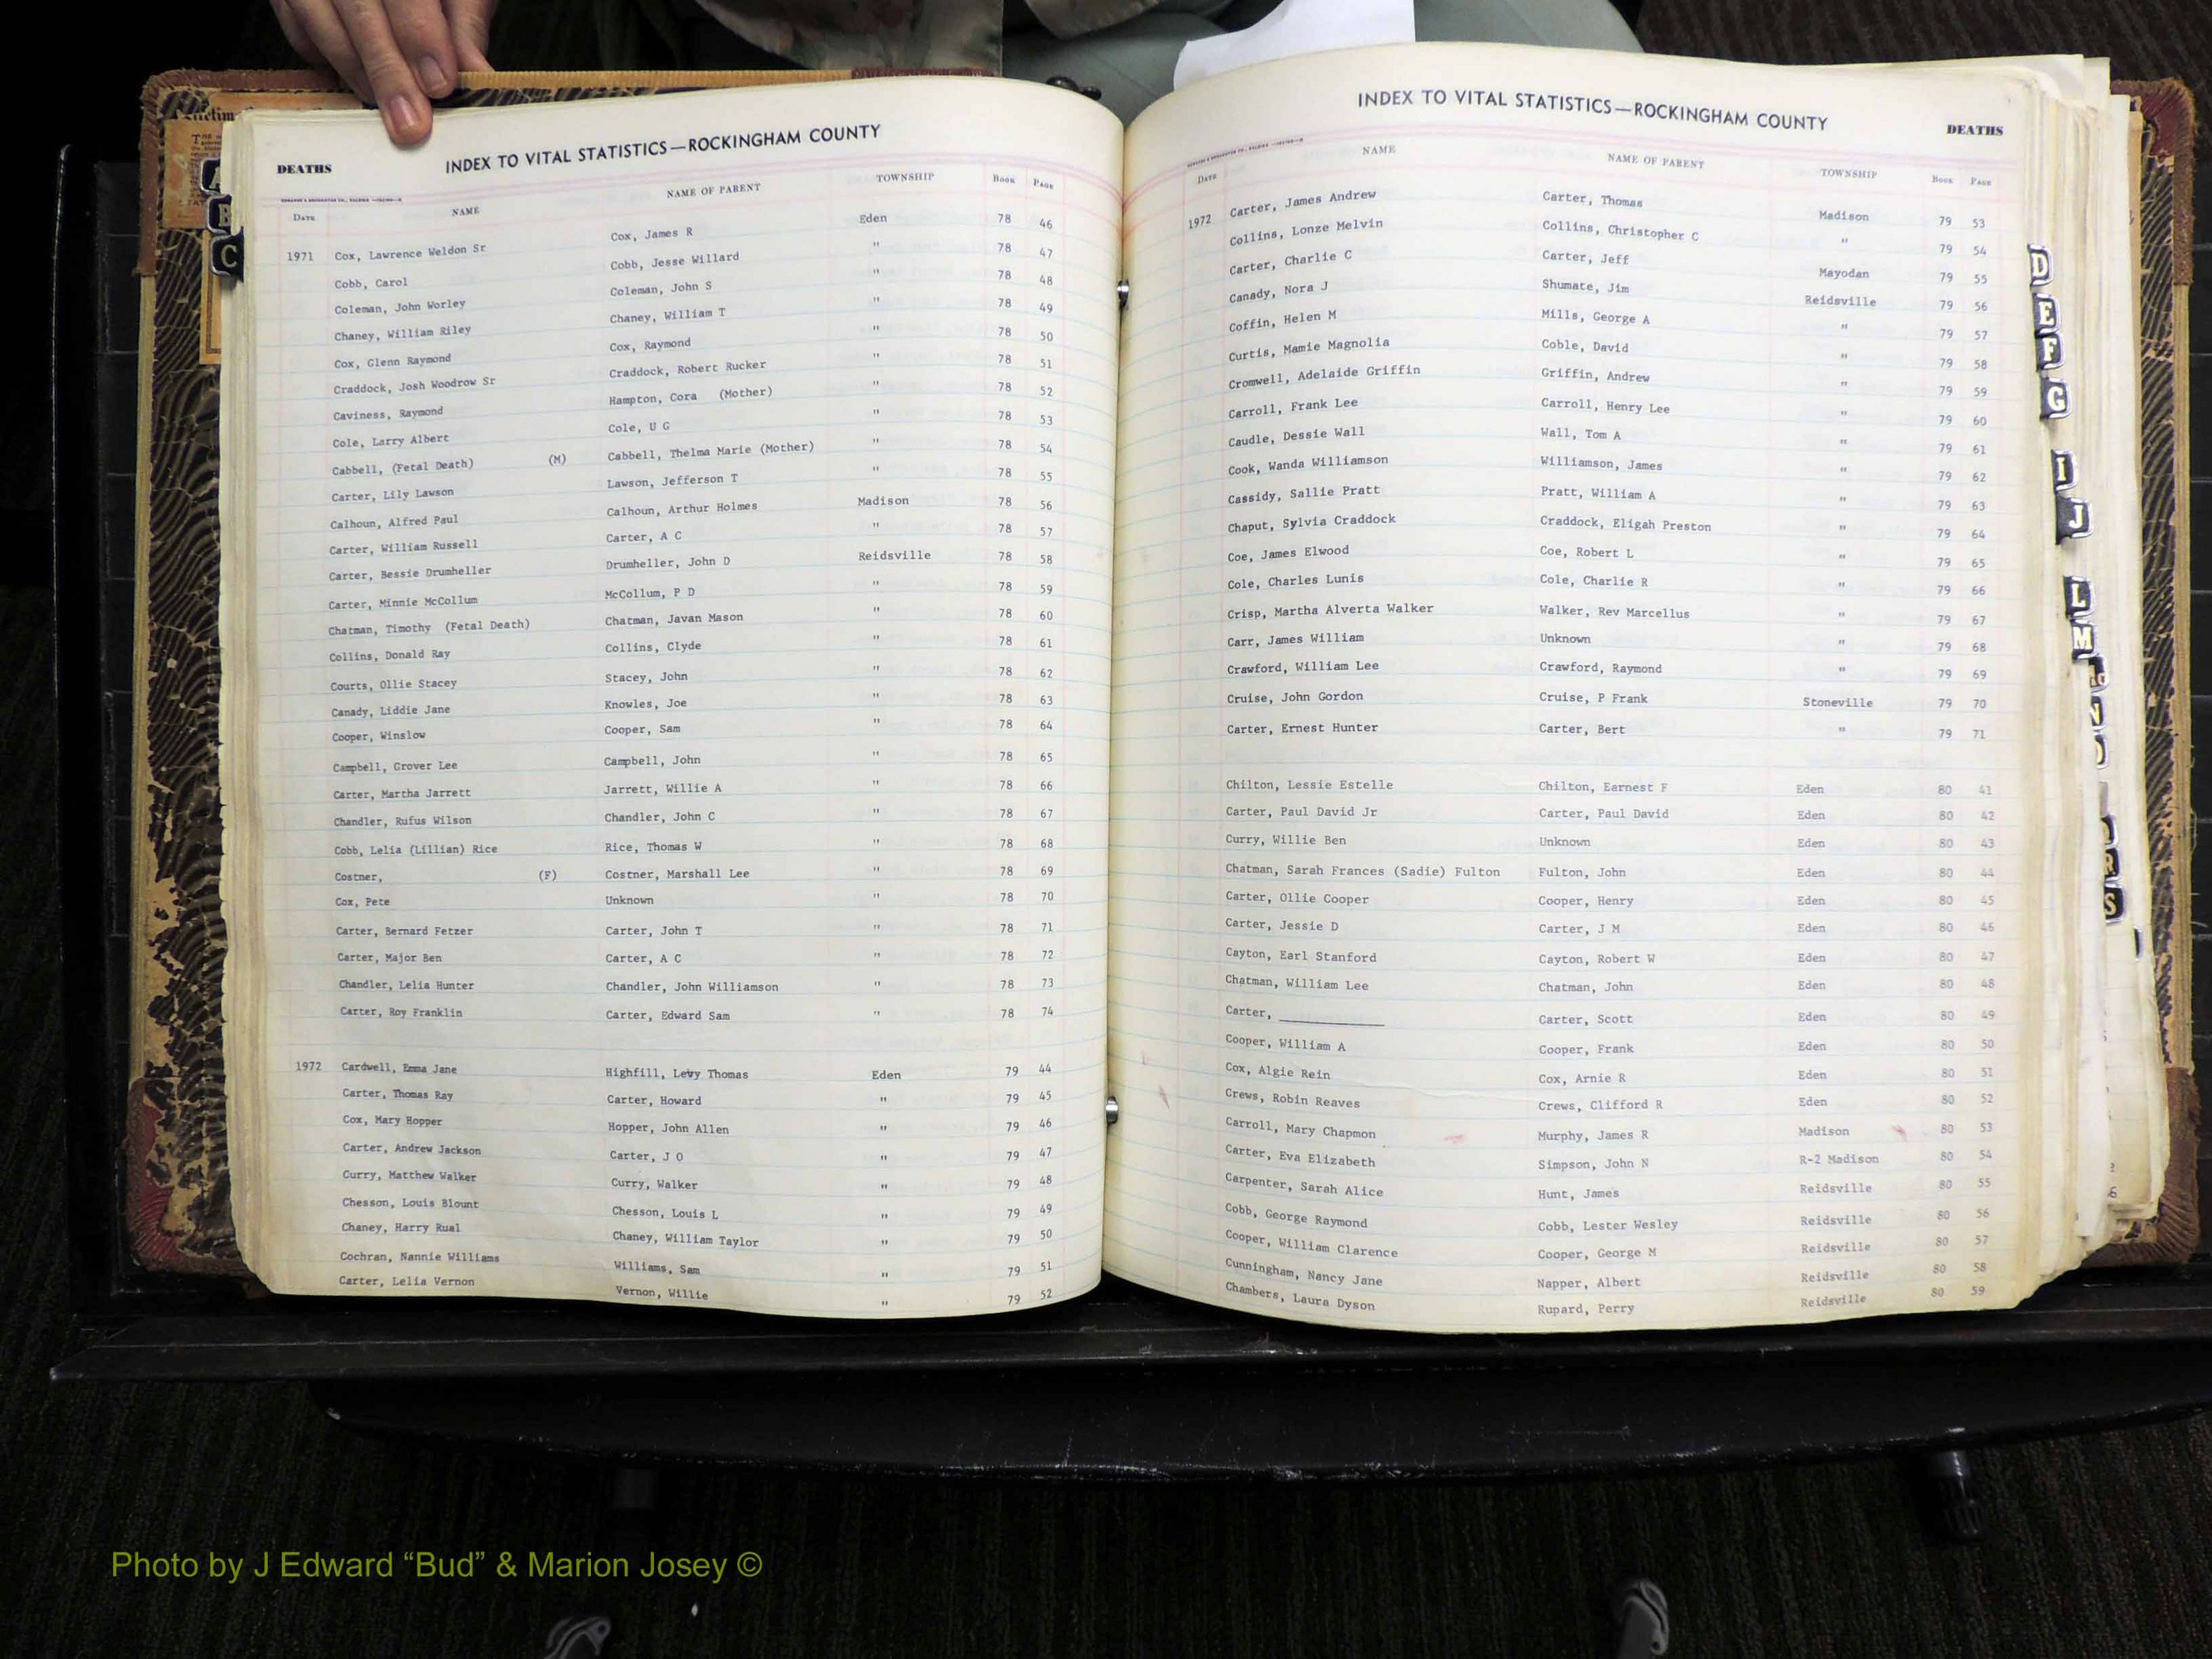 DEATHS
INDEX TO VITAL STATISTICS—ROCKINGHAM COUNTY
DATE NAME NAME OF PARENT TOWNSHIP BOOK PAGE
1971 Cox, Lawrence Weldon Sr Cox, James R Eden 78 46
Cobb, Carol Cobb, Jesse Willard " 78 47
Coleman, John Worley Coleman, John S " 78 48
Chaney, William Riley Chaney, William T " 78 49
Cox, Glenn Raymond Cox, Raymond " 78 50
Craddock, Josh Woodrow Sr Craddock, Robert Rucker " 78 51
Caviness, Raymond Hampton, Cora (Mother) " 78 52
Cole, Larry Albert Cole, U G " 78 53
Cabbell, (Fetal Death) (M) Cabbell, Thelma Marie (Mother) " 78 54
Carter, Lily Lawson Lawson, Jefferson T " 78 55
Calhoun, Alfred Paul Calhoun, Arthur Holmes Madison 78 56
Carter, William Russell Carter, A C " 78 57
Carter, Bessie Drumheller Drumheller, John D Reidsville 78 58
Carter, Minnie McCollum McCollum, P D " 78 59
Chatman, Timothy (Fetal Death) Chatman, Javan Mason " 78 60
Collins, Donald Ray Collins, Clyde " 78 61
Courts, Ollie Stacey Stacey, John " 78 62
Canady, Liddie Jane Knowles, Joe " 78 63
Cooper, Winslow Cooper, Sam " 78 64
Campbell, Grover Lee Campbell, John " 78 65
Carter, Martha Jarrett Jarrett, Willie A " 78 66
Chandler, Rufus Wilson Chandler, John C " 78 67
Cobb, Lelia (Lillian) Rice Rice, Thomas W " 78 68
Costner, (F) Costner, Marshall Lee " 78 69
Cox, Pete Unknown " 78 70
Carter, Bernard Fetzer Carter, John T " 78 71
Carter, Major Ben Carter, A C " 78 72
Chandler, Lelia Hunter Chandler, John Williamson " 78 73
Carter, Roy Franklin Carter, Edward Sam " 78 74
1972 Cardwell, Emma Jane Highfill, Levy Thomas Eden 79 44
Carter, Thomas Ray Carter, Howard " 79 45
Cox, Mary Hopper Hopper, John Allen " 79 46
Carter, Andrew Jackson Carter, J O " 79 47
Curry, Matthew Walker Curry, Walker " 79 48
Chesson, Louis Blount Chesson, Louis L " 79 49
Chaney, Harry Rual Chaney, William Taylor " 79 50
Cochran, Nannie Williams Williams, Sam " 79 51
Carter, Lelia Vernon Vernon, Willie " 79 52
INDEX TO VITAL STATISTICS—ROCKINGHAM COUNTY
DEATHS
DATE NAME NAME OF PARENT TOWNSHIP BOOK PAGE
1972 Carter, James Andrew Carter, Thomas Madison 79 53
Collins, Lonze Melvin Collins, Christopher C " 79 54
Carter, Charlie C Carter, Jeff Mayodan 79 55
Canady, Nora J Shumate, Jim Reidsville 79 56
Coffin, Helen M Mills, George A " 79 57
Curtis, Mamie Magnolia Coble, David " 79 58
Cromwell, Adelaide Griffin Griffin, Andrew " 79 59
Carroll, Frank Lee Carroll, Henry Lee " 79 60
Caudle, Dessie Wall Wall, Tom A " 79 61
Cook, Wanda Williamson Williamson, James " 79 62
Cassidy, Sallie Pratt Pratt, William A " 79 63
Chaput, Sylvia Craddock Craddock, Eligah Preston " 79 64
Coe, James Elwood Coe, Robert L " 79 65
Cole, Charles Lunis Cole, Charlie R " 79 66
Crisp, Martha Alverta Walker Walker, Rev Marcellus " 79 67
Carr, James William Unknown " 79 68
Crawford, William Lee Crawford, Raymond " 79 69
Cruise, John Gordon Cruise, P Frank Stoneville 79 70
Carter, Ernest Hunter Carter, Bert " 79 71
Chilton, Lessie Estelle Chilton, Earnest F Eden 80 41
Carter, Paul David Jr Carter, Paul David Eden 80 42
Curry, Willie Ben Unknown Eden 80 43
Chatman, Sarah Frances (Sadie) Fulton Fulton, John Eden 80 44
Carter, Ollie Cooper Cooper, Henry Eden 80 45
Carter, Jessie D Carter, J M Eden 80 46
Cayton, Earl Stanford Cayton, Robert W Eden 80 47
Chatman, William Lee Chatman, John Eden 80 48
Carter, ____________ Carter, Scott Eden 80 49
Cooper, William A Cooper, Frank Eden 80 50
Cox, Algie Rein Cox, Arnie R Eden 80 51
Crews, Robin Reaves Crews, Clifford R Eden 80 52
Carroll, Mary Chapmon Murphy, James R Madison 80 53
Carter, Eva Elizabeth Simpson, John N R-2 Madison 80 54
Carpenter, Sarah Alice Hunt, James Reidsville 80 55
Cobb, George Raymond Cobb, Lester Wesley Reidsville 80 56
Cooper, William Clarence Cooper, George M Reidsville 80 57
Cunningham, Nancy Jane Napper, Albert Reidsville 80 58
Chambers, Laura Dyson Rupard, Perry Reidsville 80 59
A
B
C
D
E
F
G
I
J
L
M
N
R
S
Photo by J Edward “Bud” & Marion Josey ©